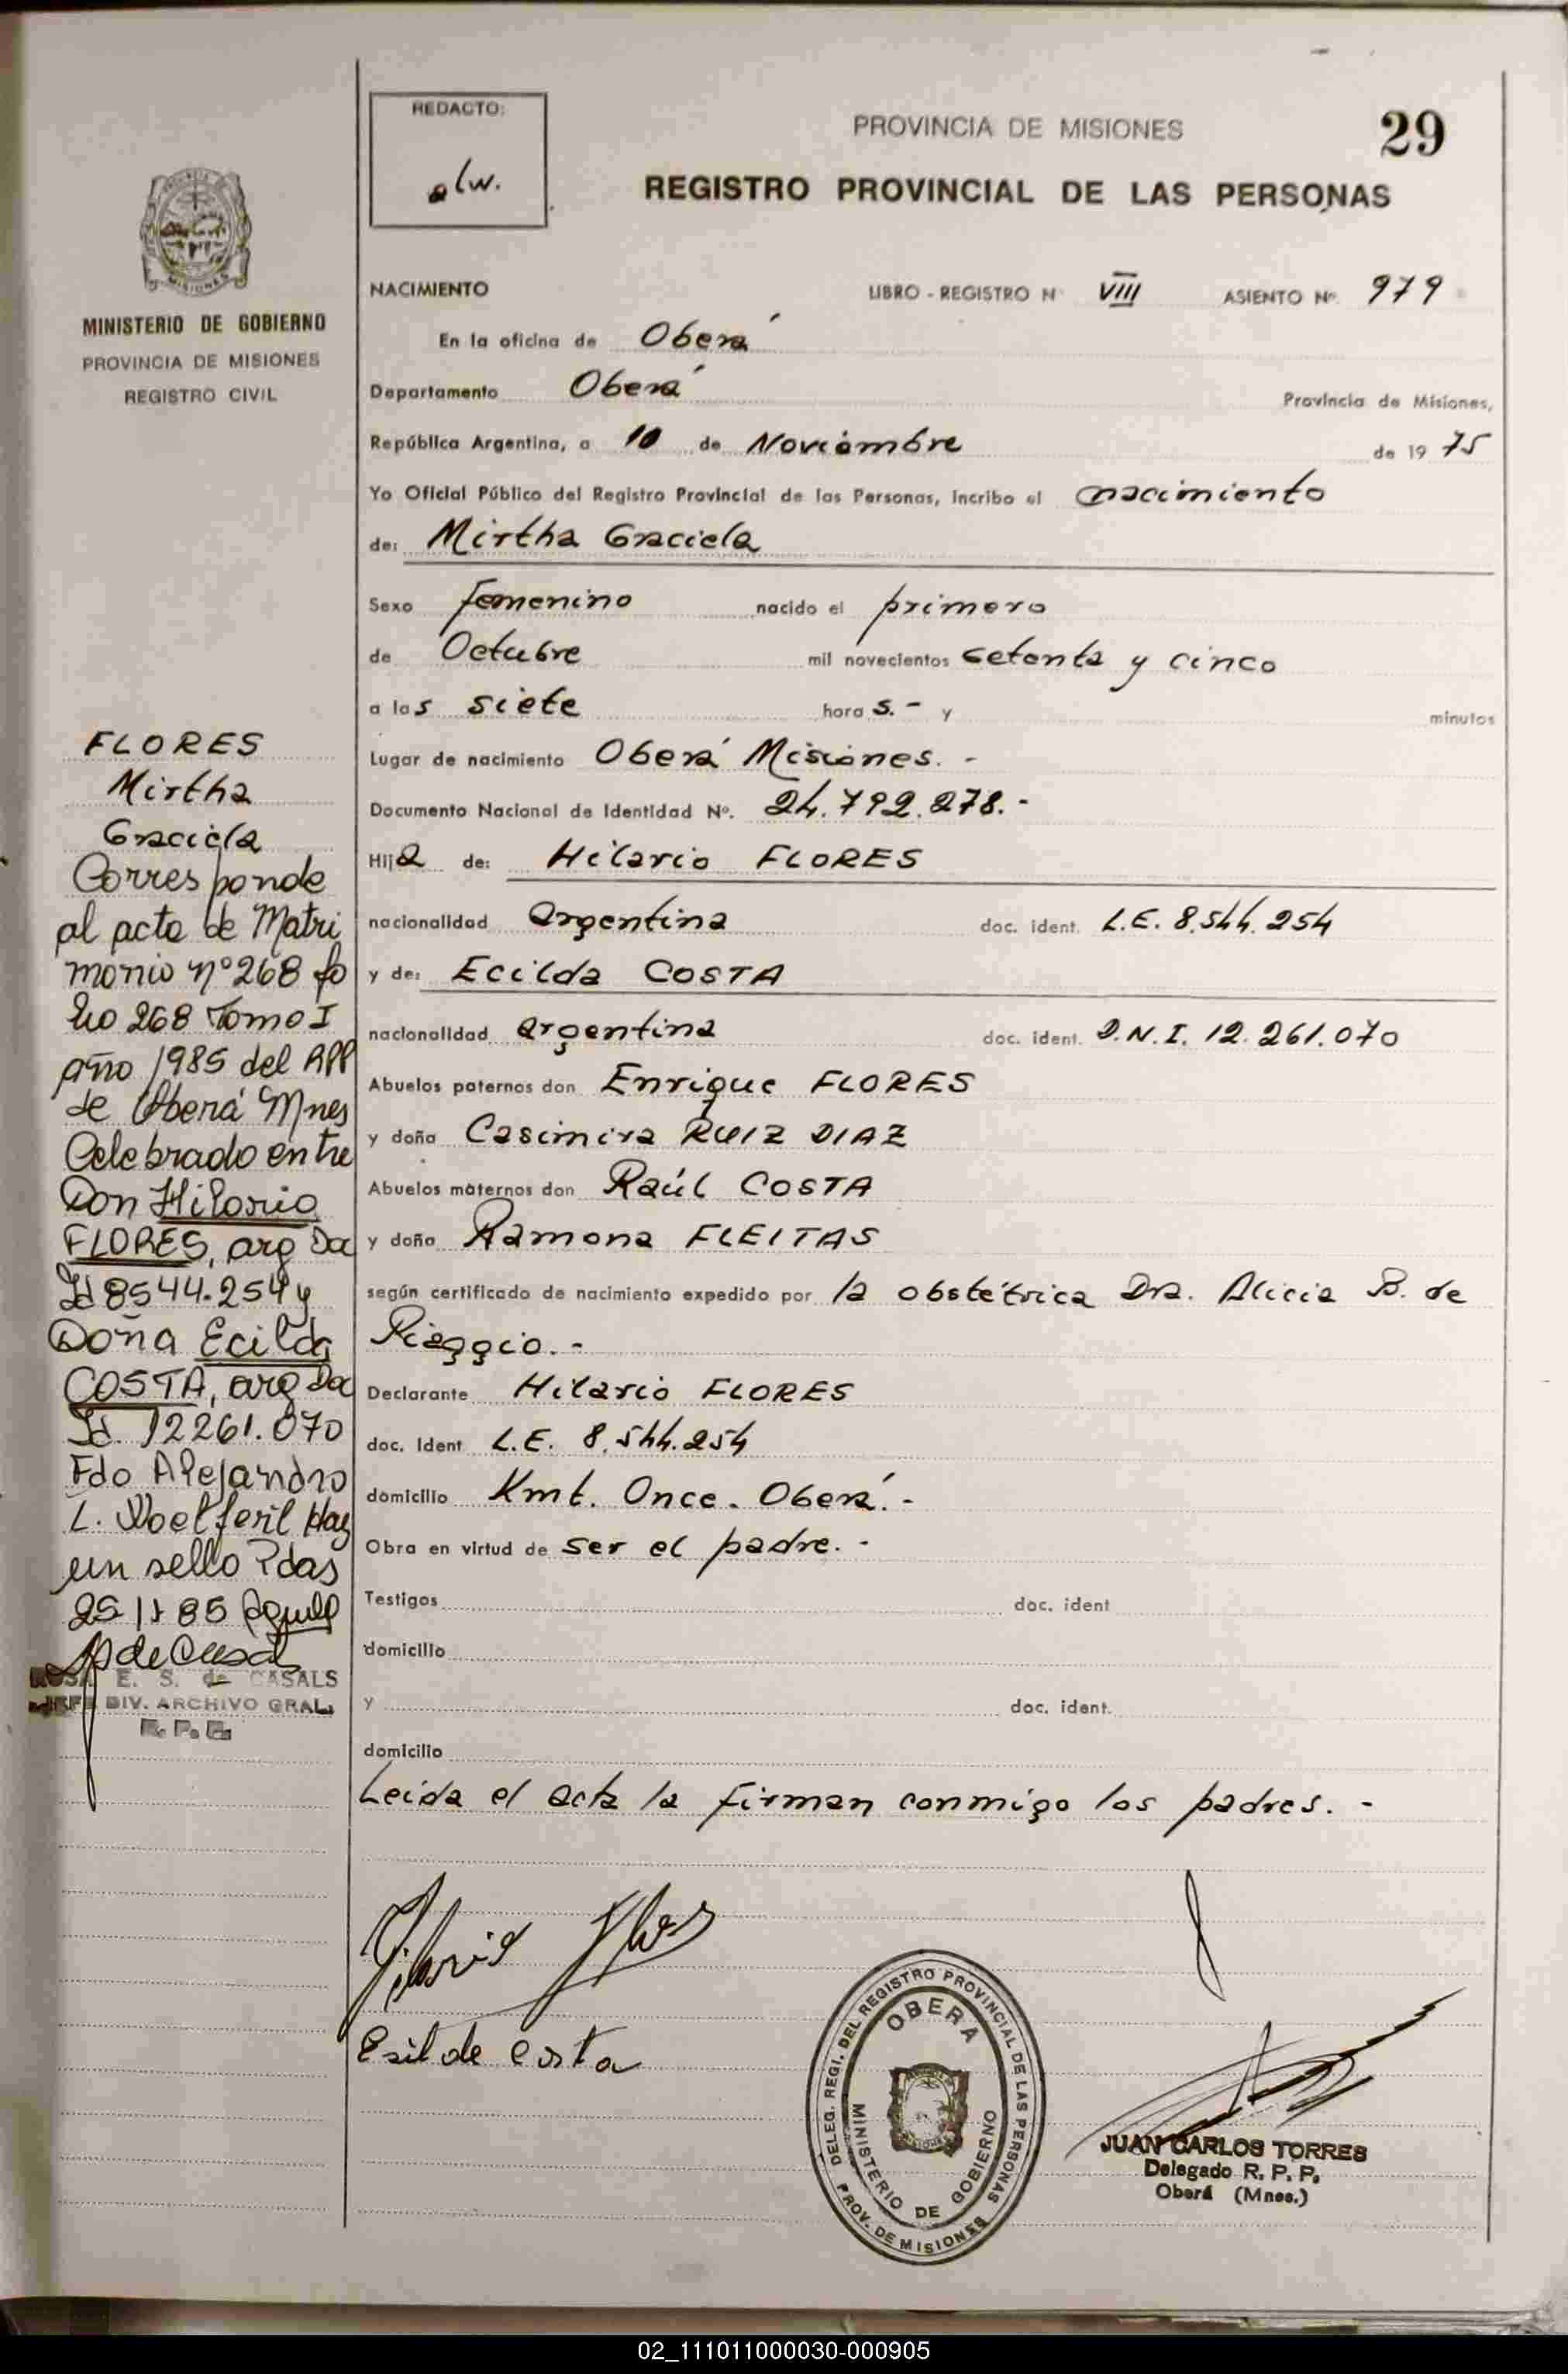 REDACTO:
alw.
PROVINCIA DE MISIONES
29
REGISTRO PROVINCIAL DE LAS PERSONAS
MINISTERIO DE GOBIERNO
PROVINCIA DE MISIONES
REGISTRO CIVIL
NACIMIENTO LIBRO - REGISTRO Nº VIII ASIENTO Nº. 979
En la oficina de Oberá
Departamento Oberá Provincia de Misiones,
República Argentina, a 10 de Noviembre de 1975
Yo Oficial Público del Registro Provincial de las Personas, incribo el nacimiento
de: Mirtha Graciela
Sexo femenino nacido el primero
de Octubre mil novecientos setenta y cinco
a las siete horas.- y minutos
Lugar de nacimiento Oberá Misiones. -
Documento Nacional de Identidad Nº. 24.792.278.-
Hija de: Hilario FLORES
nacionalidad argentina doc. ident. L.E. 8.544.254
y de: Ecilda COSTA
nacionalidad argentina doc. ident. D.N.I. 12.261.070
Abuelos paternos don Enrique FLORES
y doña Casimira RUIZ DIAZ
Abuelos maternos don Raúl COSTA
y doña Ramona FLEITAS
según certificado de nacimiento expedido por la obstétrica Dra. Alicia B. de
Piaggio. -
Declarante Hilario FLORES
doc. Ident L.E. 8.544.254
domicilio Kmt. Once. Oberá. -
Obra en virtud de ser el padre. -
Testigos doc. ident
domicilio
y doc. ident.
domicilio
Leída el acta la firman conmigo los padres. -
FLORES
Mirtha
Graciela
Corresponde
al acta de Matri
monio nº 268 fo
lio 268 Tomo I
año 1985 del RPP
de Oberá Mnes
Celebrado entre
Don Hilario
FLORES, arg Doc
Id 8544.254 y
Doña Ecilda
COSTA, arg Doc
Id. 12261.070
Fdo Alejandro
L. Hay
un sello Pdas
85
ROSA E. S. de CASALS
JEFE DIV. ARCHIVO GRAL.
R. P. P.
Hilario Flores
Esilde costa
DELEG. REGI. DEL REGISTRO PROVINCIAL DE LAS PERSONAS
PROV. DE MISIONES
OBERA
MINISTERIO DE GOBIERNO
JUAN CARLOS TORRES
Delegado R. P. P.
Oberá (Mnes.)
02_111011000030-000905